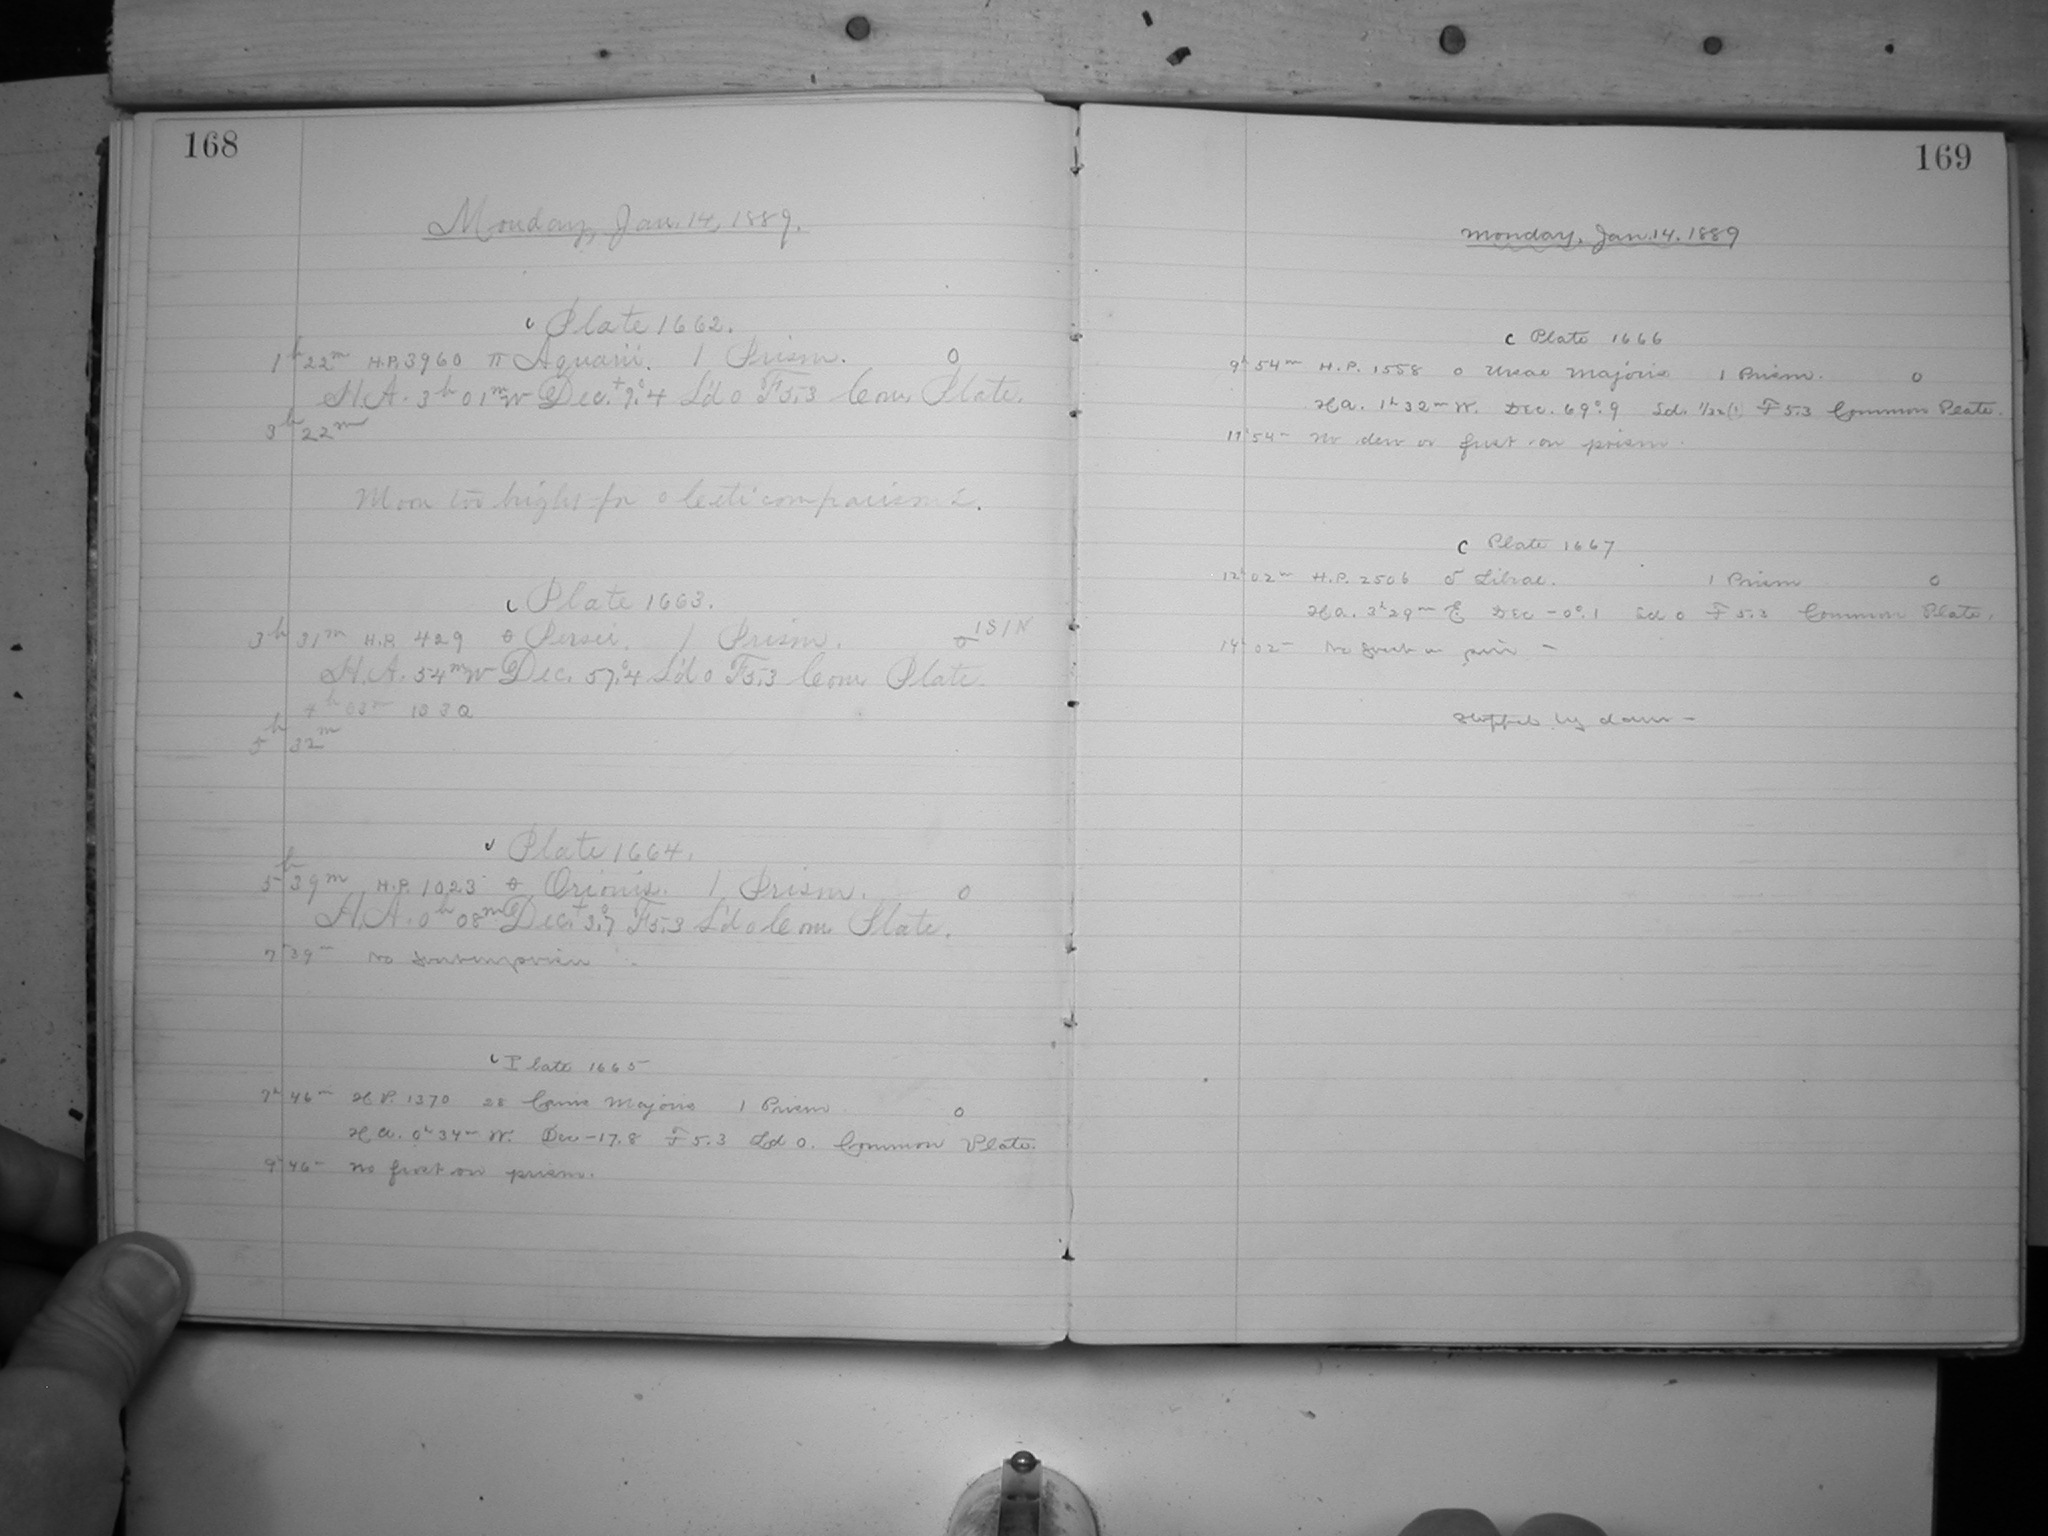 168
Monday, Jan. 14, 1889.
c Plate 1662.
1h 22m H.P. 3960 π Aquarii. 1 Prism. 0
H.A. 3h 01m W Dec. +9°.4 S'd 0 F 5.3 Com. Plate.
3h 22m
Moon too bright for o Ceti comparisons.
c Plate 1663.
3h 31m H.P. 429 Persei. 1 Prism. 0 1S1N
H.A. 54m W Dec. 57°.4 S'd 0 F 5.3 Com. Plate.
4h 03m 1S 3Q
5h 32m
c Plate 1664.
5h 39m H.P. 1023 Orionis. 1 Prism. 0
H.A. 0h 08m E Dec. +3°.7 F 5.3 S'd 0 Com. Plate.
7h 39m No frost on prism.
c Plate 1665
7h 46m H.P. 1370 28 Canis Majoris 1 Prism 0
H.A. 0h 34m W. Dec -17.8 F 5.3 Sd 0. Common Plate.
9h 46m No frost on prism.
169
Monday, Jan. 14. 1889
c Plate 1666
9h 54m H.P. 1558 o Ursae Majoris 1 Prism. 0
H.A. 1h 32m W. Dec. 69°.9 Sd. 1/32(!) F 5.3 Common Plate.
11h 54m No dew or frost on prism.
c Plate 1667
12h 02m H.P. 2506 δ Librae. 1 Prism 0
H.A. 3h 29m E Dec -0°.1 Sd 0 F 5.3 Common Plate.
14h 02m No frost on prism
Stopped by dawn -